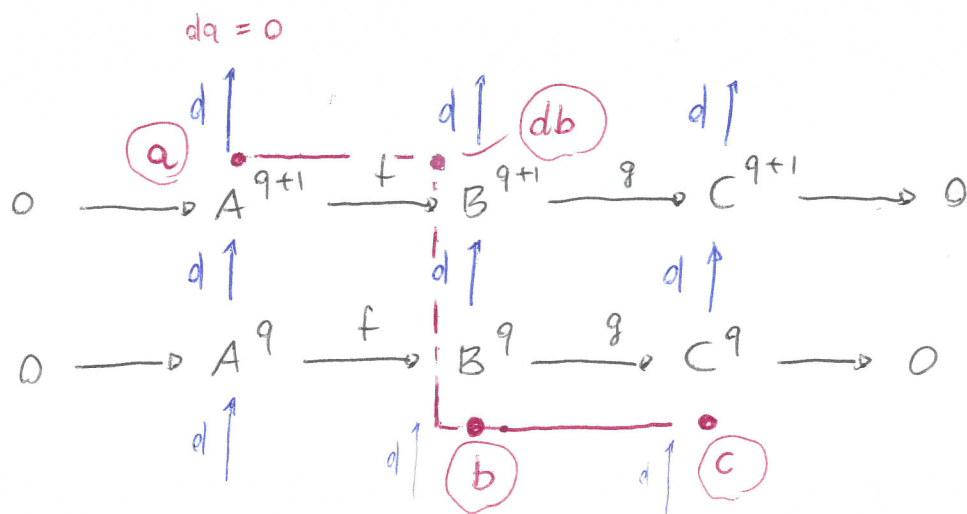 da = 0
d d d
a db
0 A^{q+1} f B^{q+1} g C^{q+1} 0
d d d
0 A^q f B^q g C^q 0
d d d
b c